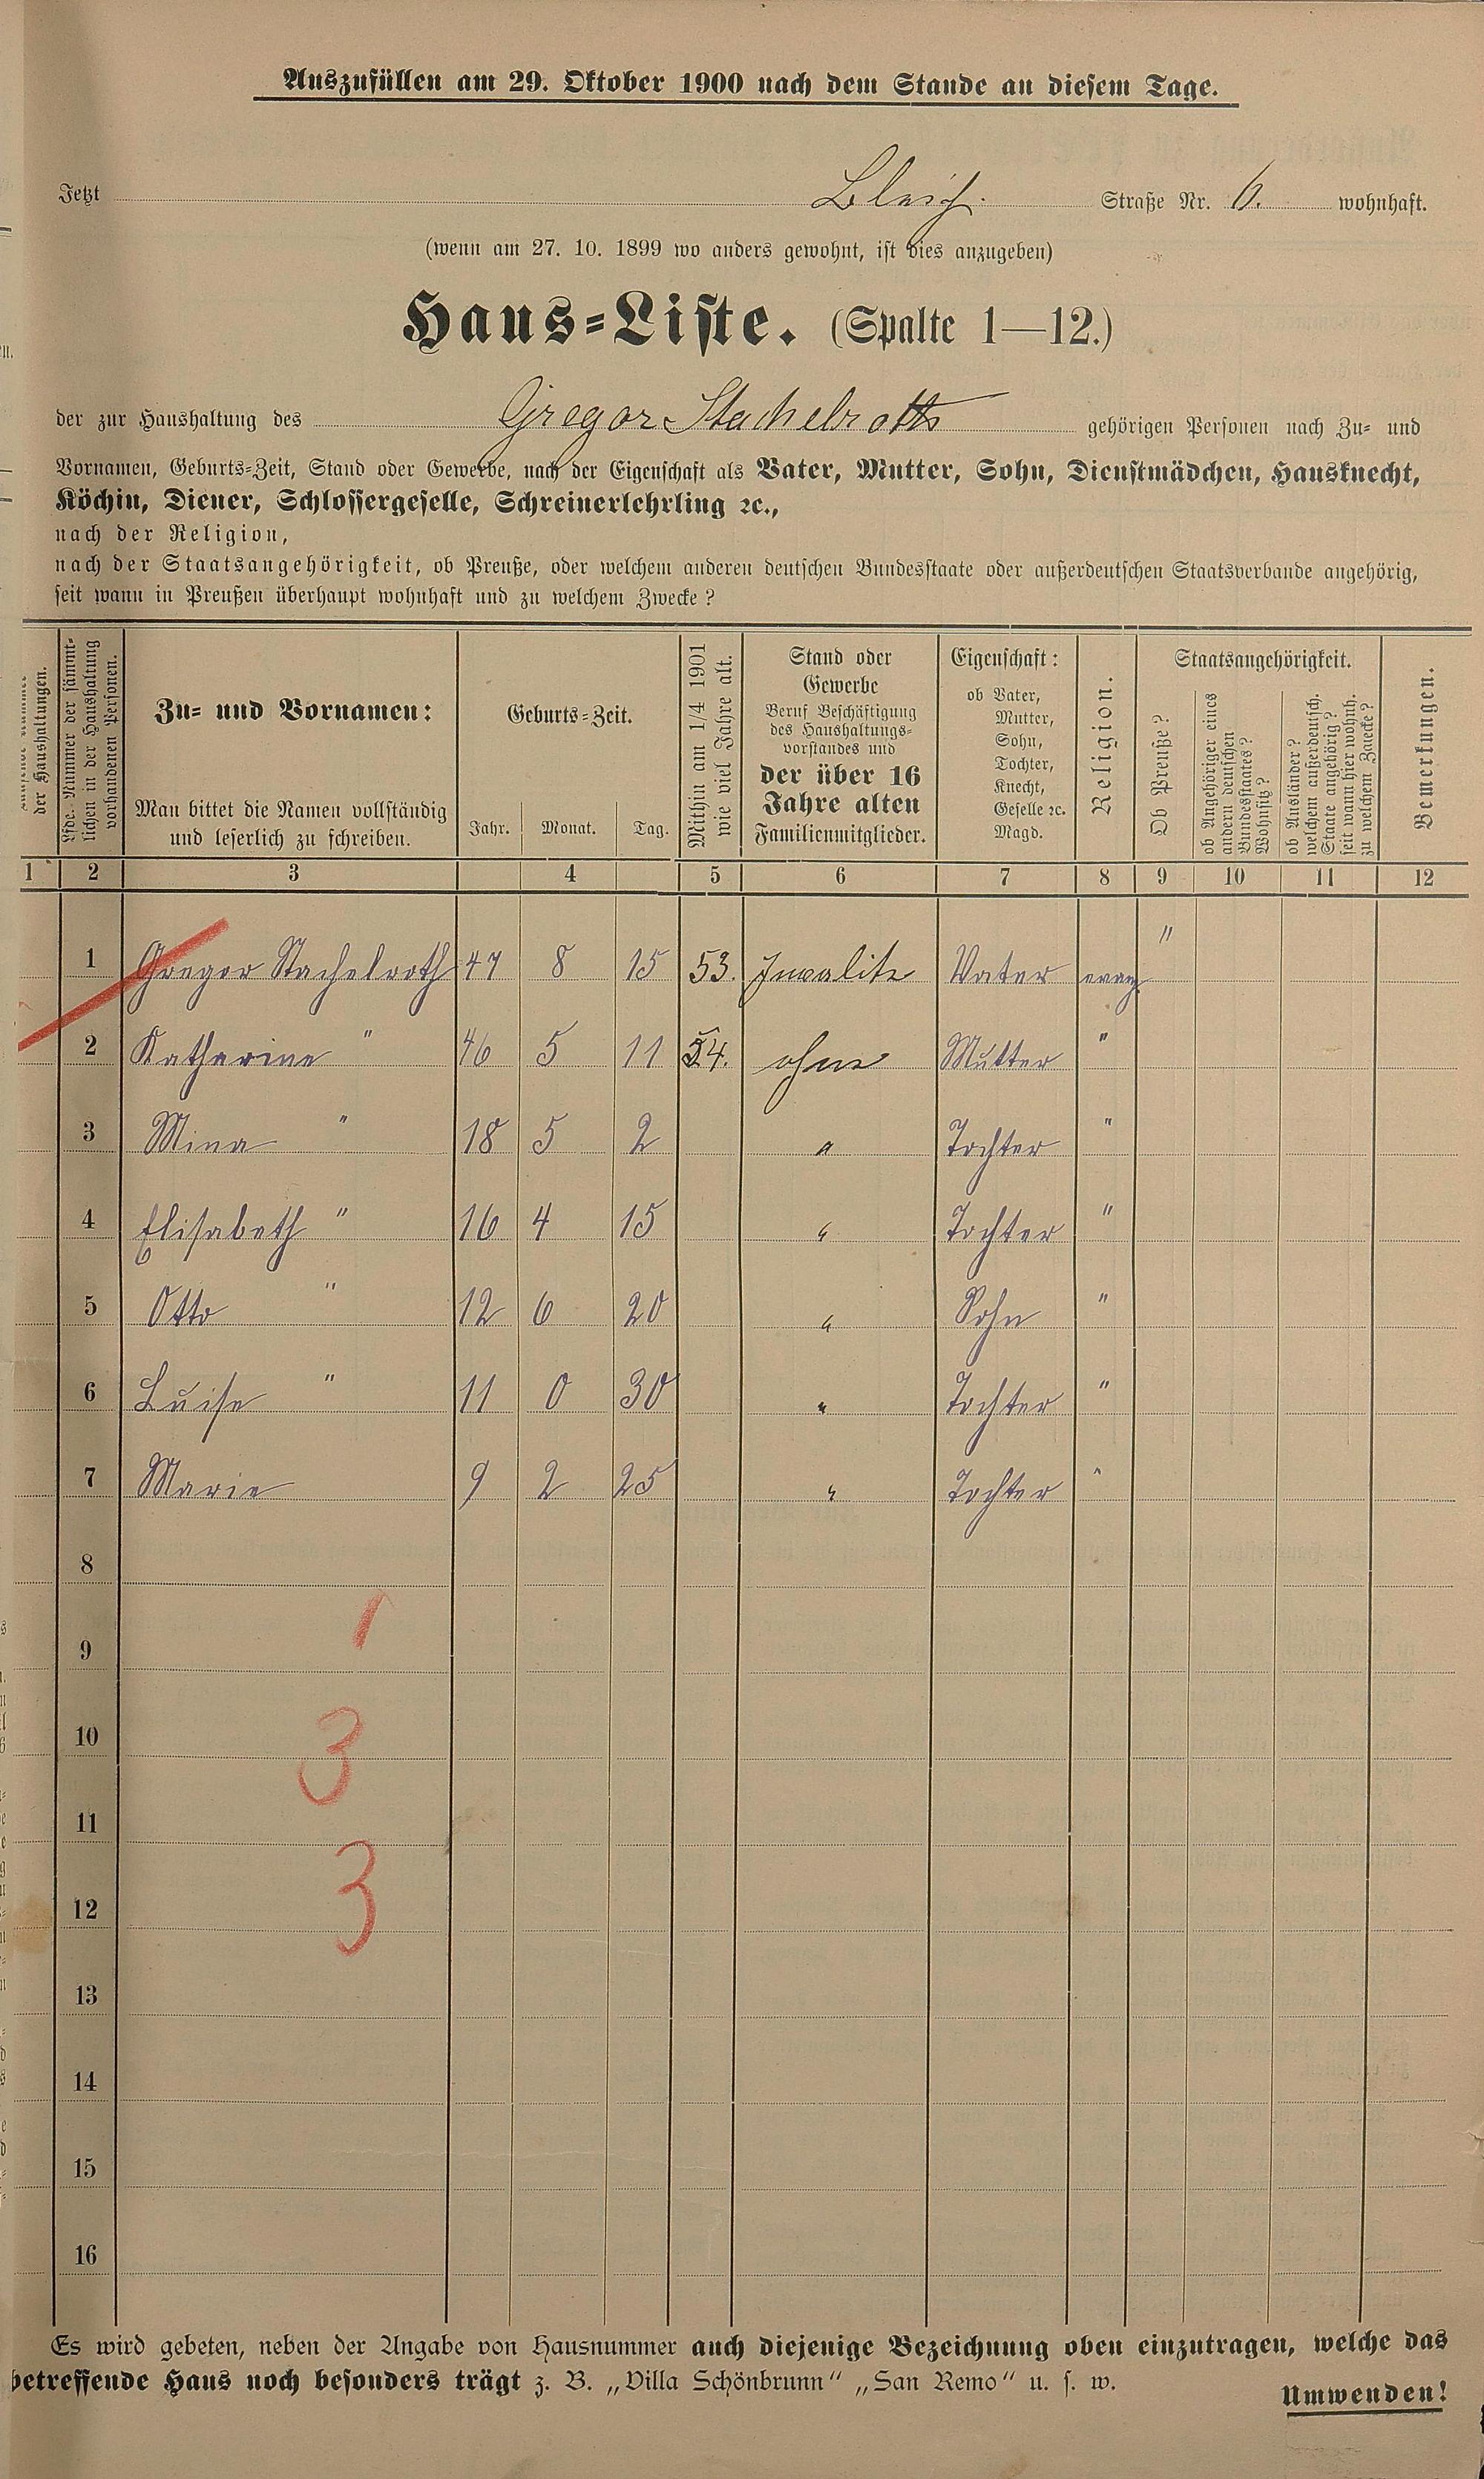 Auszufüllen am 29. Oktober 1900 nach dem Stande an diesem Tage.
Jetzt Bleich. Straße Nr. 6. wohnhaft.
(wenn am 27. 10. 1899 wo anders gewohnt, ist dies anzugeben)
Haus-Liste. (Spalte 1—12.)
der zur Haushaltung des Gregor Stachelroth gehörigen Personen nach Zu- und
Vornamen, Geburts-Zeit, Stand oder Gewerbe, nach der Eigenschaft als Vater, Mutter, Sohn, Dienstmädchen, Hausknecht,
Köchin, Diener, Schlossergeselle, Schreinerlehrling ꝛc.,
nach der Religion,
nach der Staatsangehörigkeit, ob Preuße, oder welchem anderen deutschen Bundesstaate oder außerdeutschen Staatsverbande angehörig,
seit wann in Preußen überhaupt wohnhaft und zu welchem Zwecke?
der Haushaltungen.
Lfde. Nummer der sämmt-
lichen in der Haushaltung
vorhandenen Personen.
Zu- und Vornamen:
Man bittet die Namen vollständig
und leserlich zu schreiben.
Geburts-Zeit.
Jahr. Monat. Tag.
Mithin am 1/4 1901
wie viel Jahre alt.
Stand oder
Gewerbe
Beruf Beschäftigung
des Haushaltungs-
vorstandes und
der über 16
Jahre alten
Familienmitglieder.
Eigenschaft:
ob Vater,
Mutter,
Sohn,
Tochter,
Knecht,
Geselle ꝛc.
Magd.
Religion.
Staatsangehörigkeit.
Ob Preuße?
ob Angehöriger eines
andern deutschen
Bundesstaates?
Wohnsitz?
ob Ausländer?
welchem außerdeutsch.
Staate angehörig?
seit wann hier wohnh.
zu welchem Zwecke?
Bemerkungen.
1 2 3 4 5 6 7 8 9 10 11 12
1 Gregor Stachelroth 47 8 15 53. Invalite Vater evang. "
2 Katharine " 46 5 11 54. ohne Mutter "
3 Mina " 18 5 2 " Tochter "
4 Elisabeth " 16 4 15 " Tochter "
5 Otto " 12 6 20 " Sohn "
6 Luise " 11 0 30 " Tochter "
7 Marie 9 2 25 " Tochter "
8
1
9
10
3
11
12
3
13
14
15
16
Es wird gebeten, neben der Angabe von Hausnummer auch diejenige Bezeichnung oben einzutragen, welche das
betreffende Haus noch besonders trägt z. B. „Villa Schönbrunn" „San Remo" u. s. w.
Umwenden!